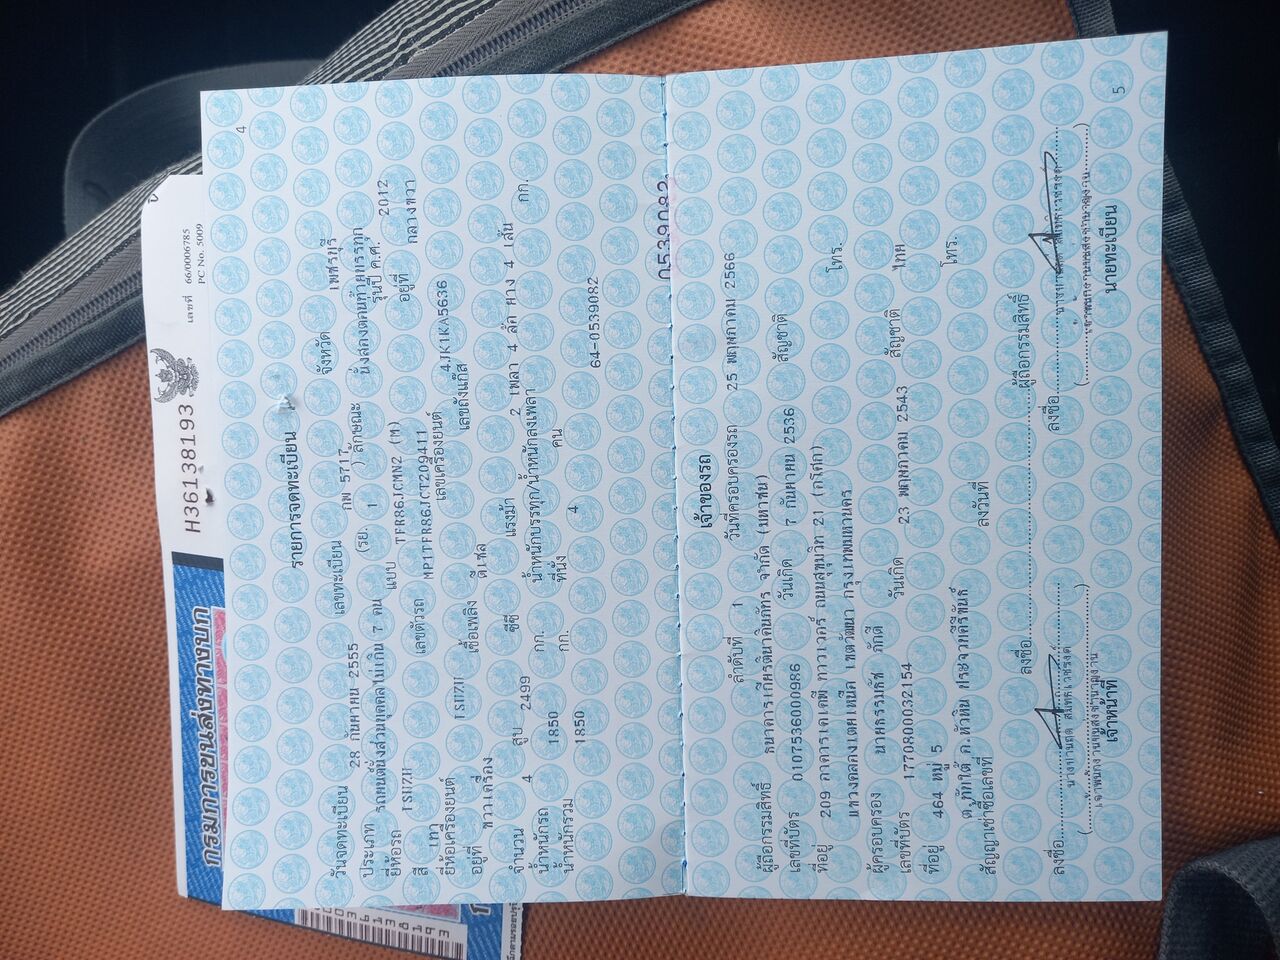 กรมการขนส่งทางบก
H36138193
เลขที่ 66/0006785
PC No. 5009
4
รายการจดทะเบียน
วันจดทะเบียน 28 กันยายน 2555 เลขทะเบียน กพ 5717 จังหวัด เพชรบุรี
ประเภท รถยนต์นั่งส่วนบุคคลไม่เกิน 7 คน (รย. 1 ) ลักษณะ นั่งสองตอนท้ายบรรทุก
ยี่ห้อรถ ISUZU แบบ TFR86JCMN2 (ท) รุ่นปี ค.ศ. 2012
สี เทา เลขตัวรถ MP1TFR86JCT209411 อยู่ที่ กลางขวา
ยี่ห้อเครื่องยนต์ ISUZU เลขเครื่องยนต์ 4JK1KA5636
อยู่ที่ ขวาเครื่อง เชื้อเพลิง ดีเซล เลขถังแก๊ส
จำนวน 4 สูบ 2499 ซีซี แรงม้า 2 เพลา 4 ล้อ ยาง 4 เส้น
น้ำหนักรถ 1850 กก. น้ำหนักบรรทุก/น้ำหนักลงเพลา กก.
น้ำหนักรวม 1850 กก. ที่นั่ง 4 คน
64-0539082
0539082
เจ้าของรถ
ลำดับที่ 1 วันที่ครอบครองรถ 25 พฤษภาคม 2566
ผู้ถือกรรมสิทธิ์ ธนาคารเกียรตินาคินภัทร จำกัด (มหาชน)
เลขที่บัตร 0107536000986 วันเกิด 7 กันยายน 2536 สัญชาติ
ที่อยู่ 209 อาคารเคเคพี ทาวเวอร์ ถนนสุขุมวิท 21 (อโศก)
แขวงคลองเตยเหนือ เขตวัฒนา กรุงเทพมหานคร โทร.
ผู้ครอบครอง นายธรรมธัช ภักดี
เลขที่บัตร 1770800032154 วันเกิด 23 พฤษภาคม 2543 สัญชาติ ไทย
ที่อยู่ 464 หมู่ 5
ต.ทับใต้ อ.หัวหิน ประจวบคีรีขันธ์ โทร.
สัญญาเช่าซื้อเลขที่ ลงวันที่
ลงชื่อ ผู้ถือกรรมสิทธิ์
ลงชื่อ
เจ้าพนักงานขนส่งชำนาญงาน
เจ้าหน้าที่
ลงชื่อ
เจ้าพนักงานขนส่งชำนาญงาน
นายทะเบียน
5